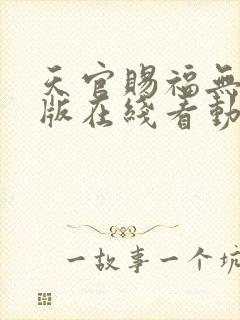 天官賜福無
版在綫看動
一故事一个坑